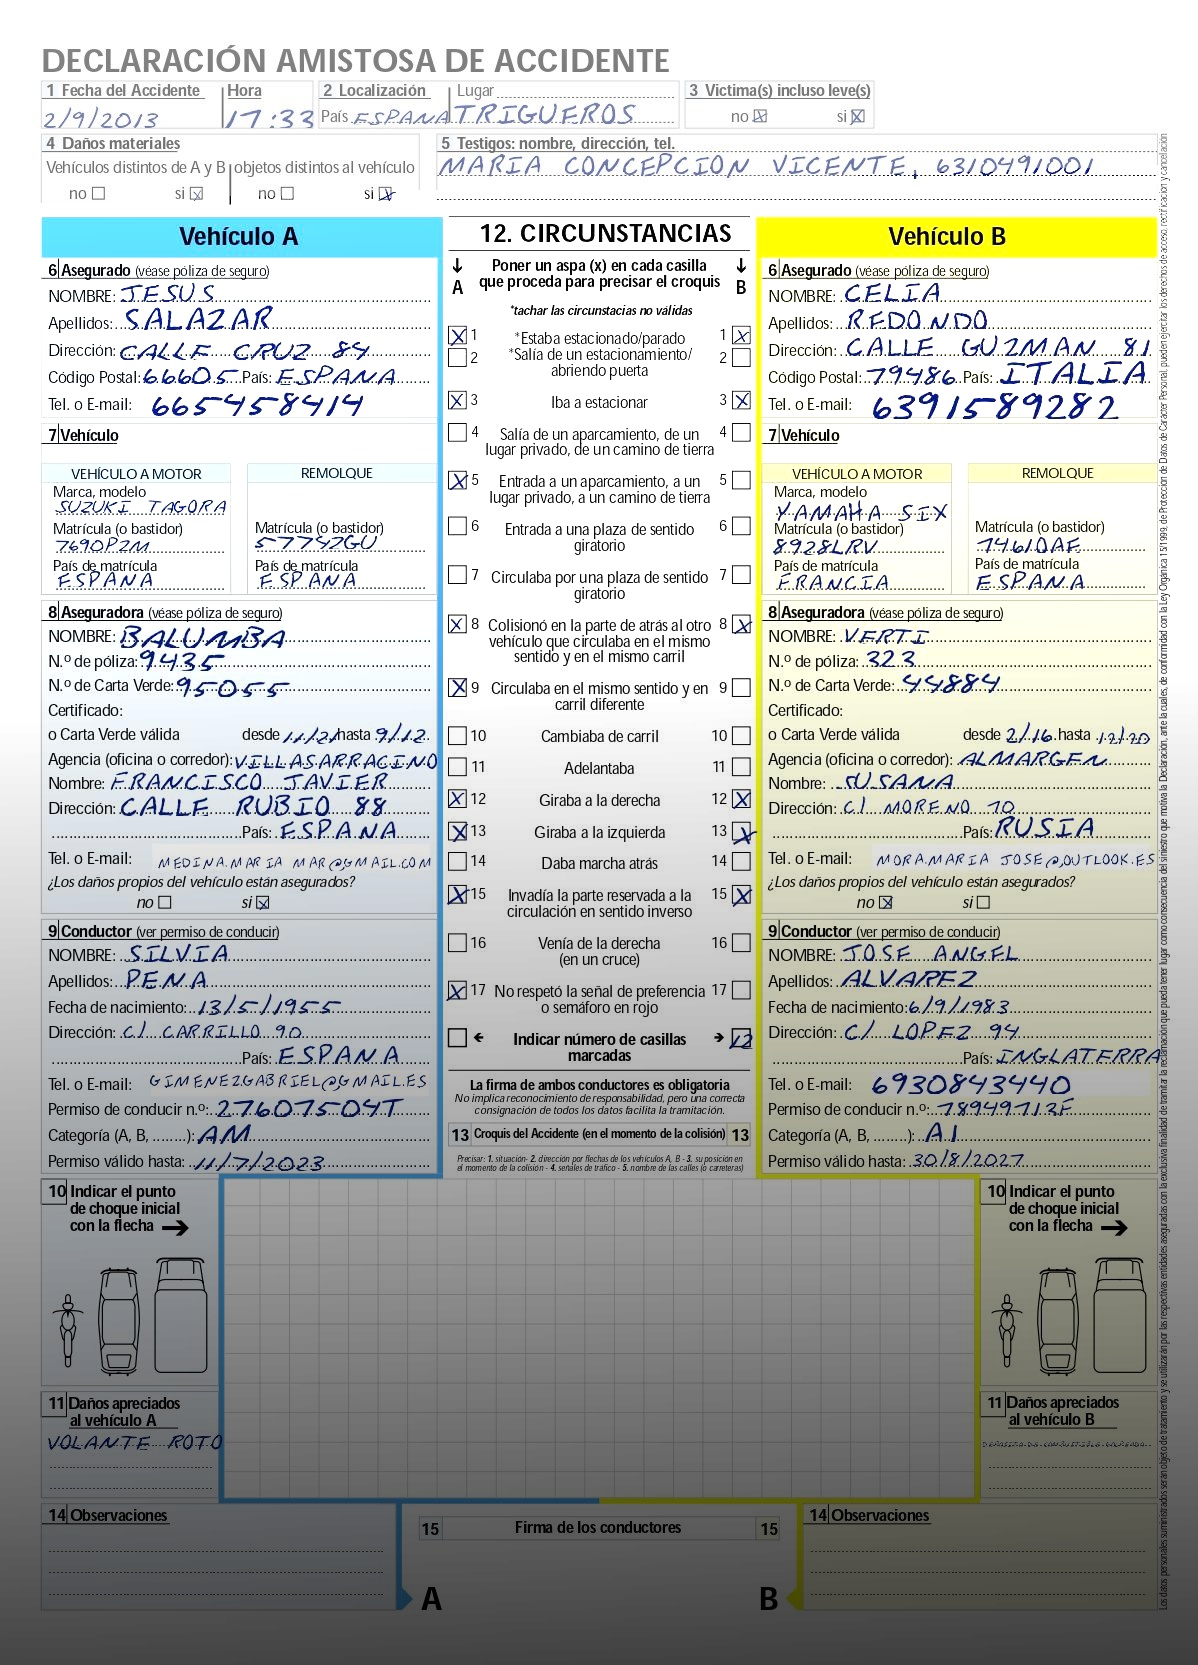 DECLARACIÓN AMISTOSA DE ACCIDENTE
1 Fecha del Accidente Hora 2 Localización Lugar 3 Victima(s) incluso leve(s)
2/9/2013 17:33 País ESPAÑA TRIGUEROS no si
4 Daños materiales
Vehículos distintos de A y B objetos distintos al vehículo
no si no si
5 Testigos: nombre, dirección, tel.
MARIA CONCEPCION VICENTE, 6310491001
Vehículo A
6 Asegurado (véase póliza de seguro)
NOMBRE: JESUS
Apellidos: SALAZAR
Dirección: CALLE CRUZ 84
Código Postal: 66605 País: ESPANA
Tel. o E-mail: 665458414
7 Vehículo
VEHÍCULO A MOTOR REMOLQUE
Marca, modelo
SUZUKI TAGORA
Matrícula (o bastidor) Matrícula (o bastidor)
7690PZM 57752GU
País de matrícula País de matrícula
ESPANA ESPANA
8 Aseguradora (véase póliza de seguro)
NOMBRE: BALUMBA
N.º de póliza: 9435
N.º de Carta Verde: 95055
Certificado:
o Carta Verde válida desde 11/21 hasta 9/12
Agencia (oficina o corredor): VILLASARRACINO
Nombre: FRANCISCO JAVIER
Dirección: CALLE RUBIO 88
País: ESPANA
Tel. o E-mail: MEDINA.MARIA MAR@GMAIL.COM
¿Los daños propios del vehículo están asegurados?
no si
9 Conductor (ver permiso de conducir)
NOMBRE: SILVIA
Apellidos: PENA
Fecha de nacimiento: 13/5/1955
Dirección: C/ CARRILLO 90
País: ESPANA
Tel. o E-mail: GIMENEZGABRIEL@GMAIL.ES
Permiso de conducir n.º: 27607504T
Categoría (A, B, ........): AM
Permiso válido hasta: 11/7/2023
10 Indicar el punto
de choque inicial
con la flecha
11 Daños apreciados
al vehículo A
VOLANTE ROTO
14 Observaciones
12. CIRCUNSTANCIAS
A Poner un aspa (x) en cada casilla B
que proceda para precisar el croquis
*tachar las circunstacias no válidas
1 *Estaba estacionado/parado 1
2 *Salía de un estacionamiento/ 2
abriendo puerta
3 Iba a estacionar 3
4 Salía de un aparcamiento, de un 4
lugar privado, de un camino de tierra
5 Entrada a un aparcamiento, a un 5
lugar privado, a un camino de tierra
6 Entrada a una plaza de sentido 6
giratorio
7 Circulaba por una plaza de sentido 7
giratorio
8 Colisionó en la parte de atrás al otro 8
vehículo que circulaba en el mismo
sentido y en el mismo carril
9 Circulaba en el mismo sentido y en 9
carril diferente
10 Cambiaba de carril 10
11 Adelantaba 11
12 Giraba a la derecha 12
13 Giraba a la izquierda 13
14 Daba marcha atrás 14
15 Invadía la parte reservada a la 15
circulación en sentido inverso
16 Venía de la derecha 16
(en un cruce)
17 No respetó la señal de preferencia 17
o semáforo en rojo
Indicar número de casillas 12
marcadas
La firma de ambos conductores es obligatoria
No implica reconocimiento de responsabilidad, pero una correcta
consignación de todos los datos facilita la tramitación.
13 Croquis del Accidente (en el momento de la colisión) 13
Precisar: 1. situación- 2. dirección por flechas de los vehículos A, B - 3. su posición en
el momento de la colisión - 4. señales de tráfico - 5. nombre de las calles (o carreteras)
15 Firma de los conductores 15
A B
Vehículo B
6 Asegurado (véase póliza de seguro)
NOMBRE: CELIA
Apellidos: REDONDO
Dirección: CALLE GUZMAN 81
Código Postal: 79486 País: ITALIA
Tel. o E-mail: 6391589282
7 Vehículo
VEHÍCULO A MOTOR REMOLQUE
Marca, modelo
YAMAHA SIX
Matrícula (o bastidor) Matrícula (o bastidor)
8928LRV 7461DAE
País de matrícula País de matrícula
FRANCIA ESPANA
8 Aseguradora (véase póliza de seguro)
NOMBRE: VERTI
N.º de póliza: 323
N.º de Carta Verde: 44884
Certificado:
o Carta Verde válida desde 2/16 hasta 12/20
Agencia (oficina o corredor): ALMARGEN
Nombre: SUSANA
Dirección: C/ MORENO 70
País: RUSIA
Tel. o E-mail: MORA.MARIA JOSE@OUTLOOK.ES
¿Los daños propios del vehículo están asegurados?
no si
9 Conductor (ver permiso de conducir)
NOMBRE: JOSE ANGEL
Apellidos: ALVAREZ
Fecha de nacimiento: 6/9/1983
Dirección: C/ LOPEZ 94
País: INGLATERRA
Tel. o E-mail: 6930843440
Permiso de conducir n.º: 78949713F
Categoría (A, B, ........): A1
Permiso válido hasta: 30/8/2027
10 Indicar el punto
de choque inicial
con la flecha
11 Daños apreciados
al vehículo B
14 Observaciones